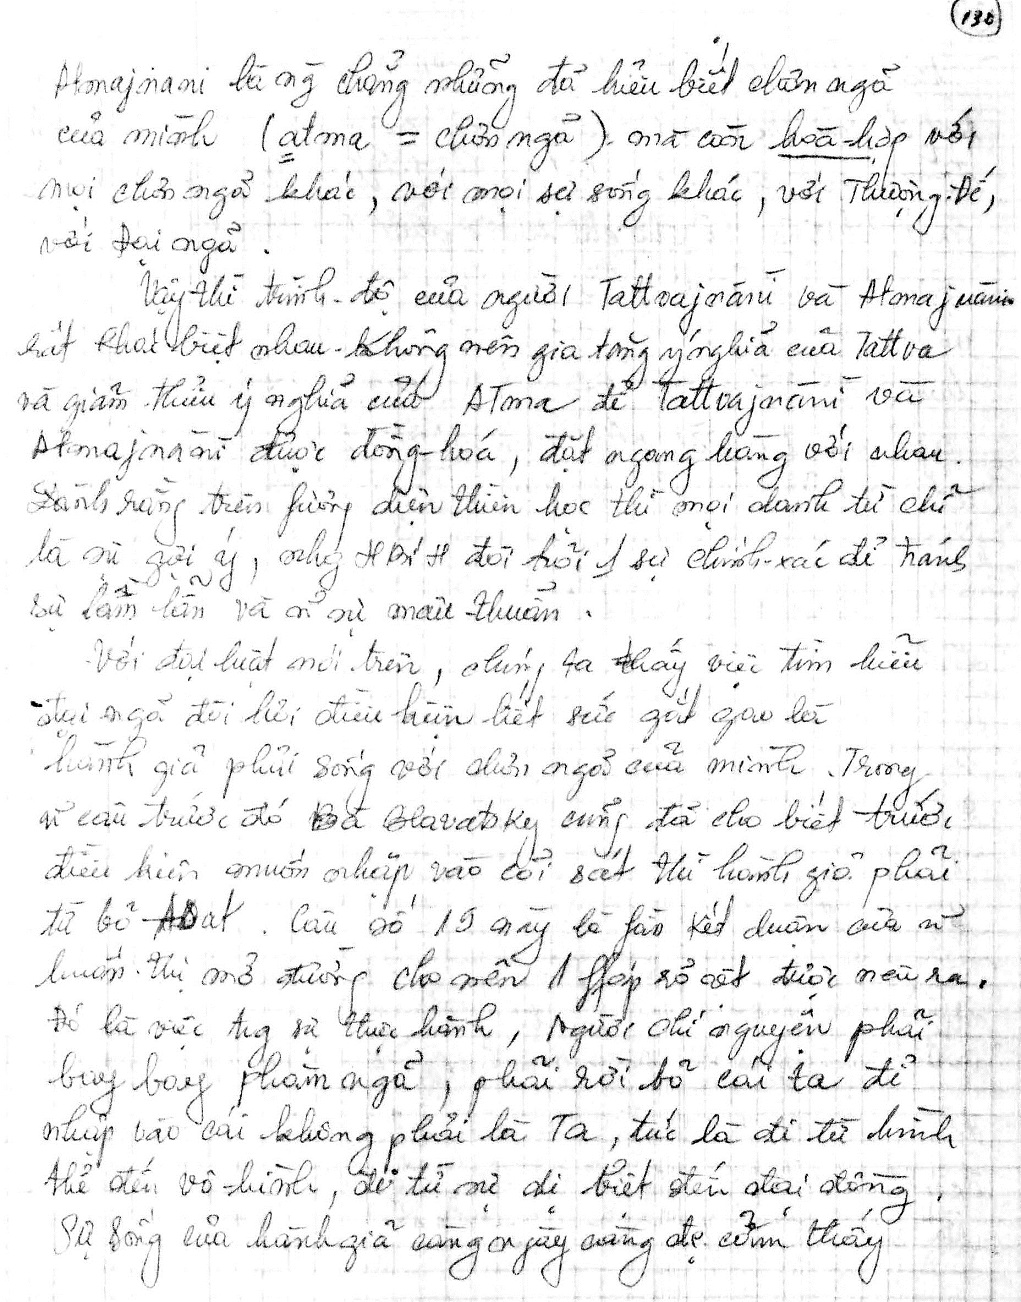 130
Atmajnani là ng chẳng những đã hiểu biết chơn ngã
của mình (atma = chơn ngã) mà còn hoà-hợp với
mọi chơn ngã khác, với mọi sự sống khác, với Thượng-Đế,
với Đại ngã.
Vậy thì trình-độ của người Tattvajnãni và Atmajnãni
rất khác biệt nhau. Không nên gia tăng ý nghĩa của Tattva
và giảm thiểu ý nghĩa của ATma để Tattvajnãni và
Atmajnãni được đồng-hoá, đặt ngang hàng với nhau.
Đành rằng trên phương diện thiền học thì mọi danh từ chỉ
là sự gợi ý, nhg HBiH đòi hỏi 1 sự chính-xác để tránh
sự lầm lẫn và sự mâu-thuẫn.
Với đại luật nói trên, chúng ta thấy việc tìm hiểu
đại ngã đòi hỏi điều kiện hết sức gắt gao là
hành giả phải sống với chơn ngã của mình. Trong
câu trước đó Bà Blavatsky cũng đã cho biết trước
điều kiện muốn nhập vào cõi sát thì hành giả phải
từ bỏ Asat. Câu số 19 này là kết luận của
huấn-thị mở đường cho nên 1 ffáp số cốt được nêu ra.
Đó là việc trg sự thực hành, Người chí nguyện phải
phàm ngã, phải rời bỏ cái ta để
nhập vào cái không phải là Ta, tức là đi từ hình
thể đến vô-hình, đi từ sự dị biệt đến đại đồng.
Sự sống của hành giả càng ngày càng cảm thấy